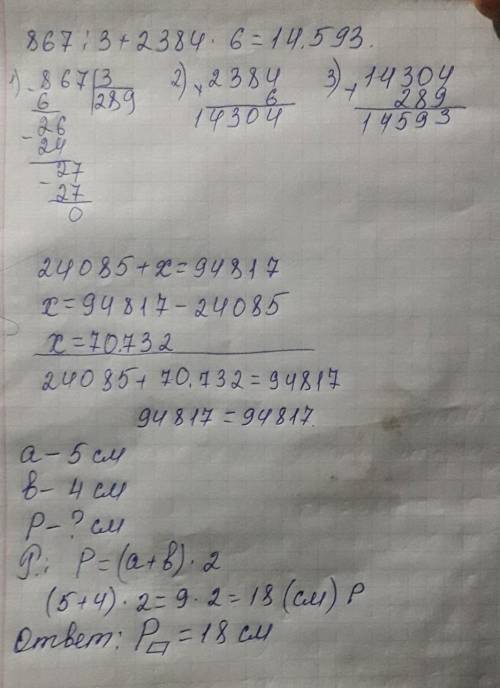 867:3+2384·6=14.593.
1) -867|3 2) ×2384 3) +14304
6 289 6 289
-26 14304 14593
24
-27
27
0
24085+x=94817
x=94817-24085
x=70.732
24085+70.732=94817
94817=94817.
a-5 см
в-4 см
P-? см
P: P=(a+в)·2
(5+4)·2=9·2=18(см) P
Ответ: P▱=18 см